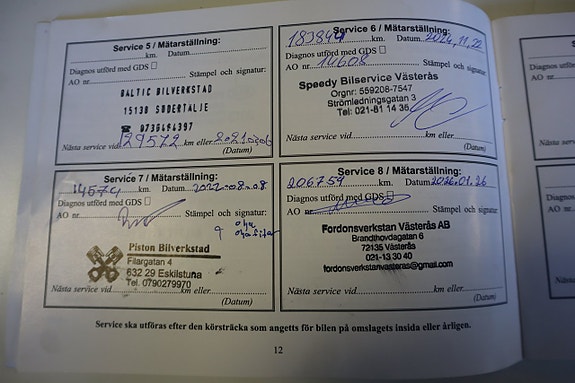 Service 5 / Mätarställning:
km. Datum
Diagnos utförd med GDS
AO nr. Stämpel och signatur:
BALTIC BILVERKSTAD
15138 SÖDERTALJE
☎ 0736494397
Nästa service vid 129572 km eller
(Datum)
Service 6 / Mätarställning:
183844 km. Datum 2024,11,22
Diagnos utförd med GDS
AO nr 14608 Stämpel och signatur:
Speedy Bilservice Västerås
Orgnr: 559208-7547
Strömledningsgatan 3
Tel: 021-81 14 36
Nästa service vid km eller
(Datum)
Service 7 / Mätarställning:
14574 km. Datum 2022-08-08
Diagnos utförd med GDS
AO nr. Stämpel och signatur:
Piston Bilverkstad
Filargatan 4
632 29 Eskilstuna
Tel. 0790279970
Nästa service vid km eller
(Datum)
Service 8 / Mätarställning:
206759 km. Datum 2026.01.26
Diagnos utförd med GDS
AO nr Stämpel och signatur:
Fordonsverkstan Västerås AB
Brandthovdagatan 6
72135 Västerås
021-13 30 40
fordonsverkstanvasteras@gmail.com
Nästa service vid km eller
(Datum)
Service ska utföras efter den körsträcka som angetts för bilen på omslagets insida eller årligen.
12